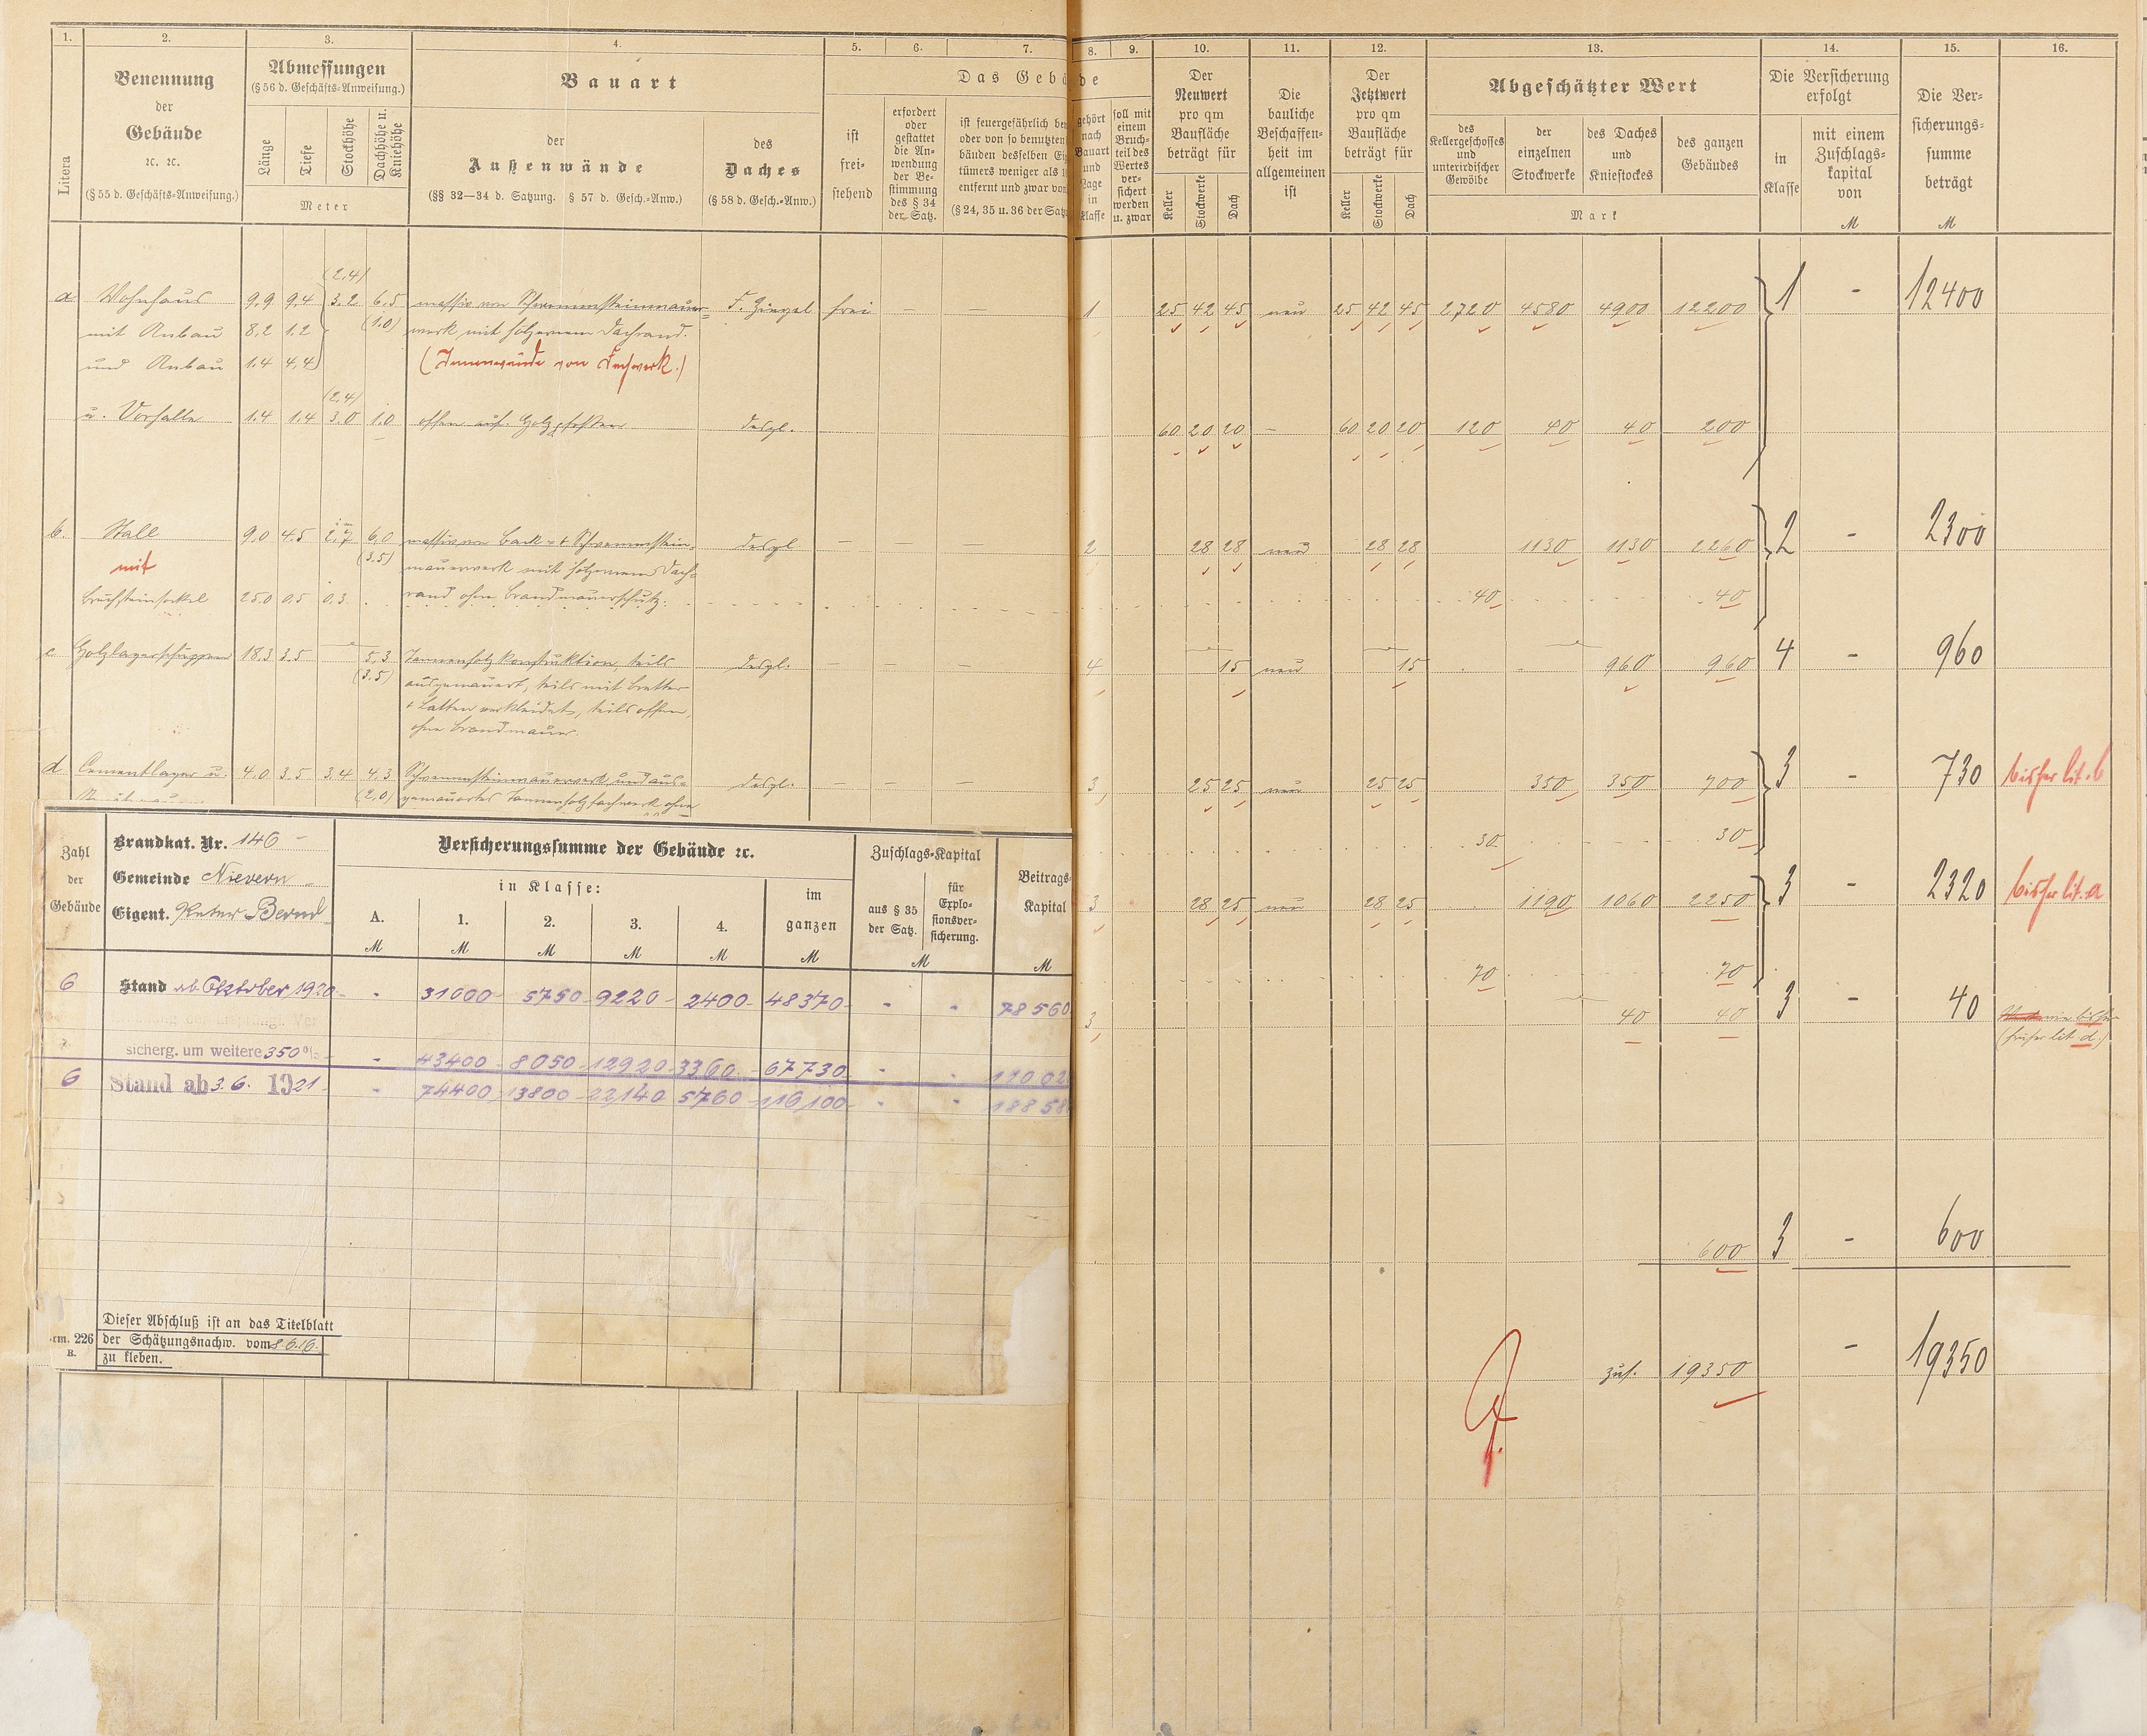 1. 2. 3. 4. 5. 6. 7. 8. 9. 10. 11. 12. 13. 14. 15. 16.
Litera
Benennung
der
Gebäude
ꝛc. ꝛc.
(§ 55 d. Geschäfts-Anweisung.)
Abmessungen
(§ 56 d. Geschäfts-Anweisung.)
Länge
Tiefe
Stockhöhe
Dachhöhe u.
Kniehöhe
Meter
Bauart
der
Außenwände
(§§ 32—34 d. Satzung. § 57 d. Gesch.-Anw.)
des
Daches
(§ 58 d. Gesch.-Anw.)
Das Gebäude
ist
frei-
stehend
erfordert
oder
gestattet
die An-
wendung
der Be-
stimmung
des § 34
der Satz.
ist feuergefährlich
oder von so benutzten
bäuden desselben
tümers weniger als
entfernt und zwar von
(§ 24, 35 u. 36 der Satz
gehört
nach
Bauart
und
Lage
in
Klasse
soll mit
einem
Bruch-
teil des
Wertes
ver-
sichert
werden
u. zwar
Der
Neuwert
pro qm
Baufläche
beträgt für
Keller
Stockwerke
Dach
Die
bauliche
Beschaffen-
heit im
allgemeinen
ist
Der
Jetztwert
pro qm
Baufläche
beträgt für
Keller
Stockwerke
Dach
Abgeschätzter Wert
des
Kellergeschosses
und
unterirdischer
Gewölbe
der
einzelnen
Stockwerke
des Daches
und
Kniestockes
des ganzen
Gebäudes
Mark
Die Versicherung
erfolgt
in
Klasse
mit einem
Zuschlags-
kapital
von
M
Die Ver-
sicherungs-
summe
beträgt
M
(2,4)
a Wohnhaus 9,9 9,4 3,2 6,5 massiv von Schwemmsteinmauer- F. Ziegel frei — — 1 25 42 45 neu 25 42 45 2720 4580 4900 12200 1 - 12400
mit Anbau 8,2 1,2 (1,0) werk mit hölzernem Dachrand.
und Anbau 1,4 4,4 (Innenwände von Fachwerk.)
(2,4)
u. Vorhalle 1,4 1,4 3,0 1,0 offen auf Holzpfosten desgl. 60 20 20 - 60 20 20 120 40 40 200
b. Stall 9,0 4,5 2,7 6,0 massiv von Back- + Schwemmstein- desgl — — 2 28 28 neu 28 28 1130 1130 2260 2 - 2300
mit (3,5) mauerwerk mit hölzernem Dach-
Bruchsteinsockel 25,0 0,5 0,3 rand ohne Brandmauerschutz. 40 40
c Holzlagerschuppen 18,3 3,5 — 5,3 Tannenholzkonstruktion, teils desgl. — — — 4 15 neu 15 960 960 4 - 960
(3,5) ausgemauert, teils mit Bretter
+ Latten verkleidet, teils offen,
ohne Brandmauer.
d Cementlager u. 4,0 3,5 3,4 4,3 Schwemmsteinmauerwerk und aus- desgl. — — — 3 25 25 neu 25 25 350 350 700 3 - 730 bisher lit. b
(2,0) gemauertes Tannenholzfachwerk ohne
30 30
3 28 25 neu 28 25 1190 1060 2250 3 - 2320 bisher lit. a
70 70
3 40 40 3 - 40 wie bisher
(früher lit d.)
600 3 - 600
zus. 19350 - 19350
Zahl
der
Gebäude
Brandkat. Nr. 146 -
Gemeinde Nievern
Eigent. Peter Bernd
Versicherungssumme der Gebäude ꝛc.
in Klasse:
A. 1. 2. 3. 4.
im
ganzen
M M M M M M
Zuschlags-Kapital
aus § 35
der Satz.
für
Explo-
sionsver-
sicherung.
M
Beitrags-
Kapital
M
6 Stand ab Oktober 1920 - 31000 5750 9220 2400 48370 - - 78560
sicherg. um weitere 350% - 43400 8050 12920 3360 67730 - -
6 Stand ab 3.6. 1921 - 74400 13800 22140 5760 116100 - -
Dieser Abschluß ist an das Titelblatt
rm. 226 der Schätzungsnachw. vom 8.6.16.
B. zu kleben.